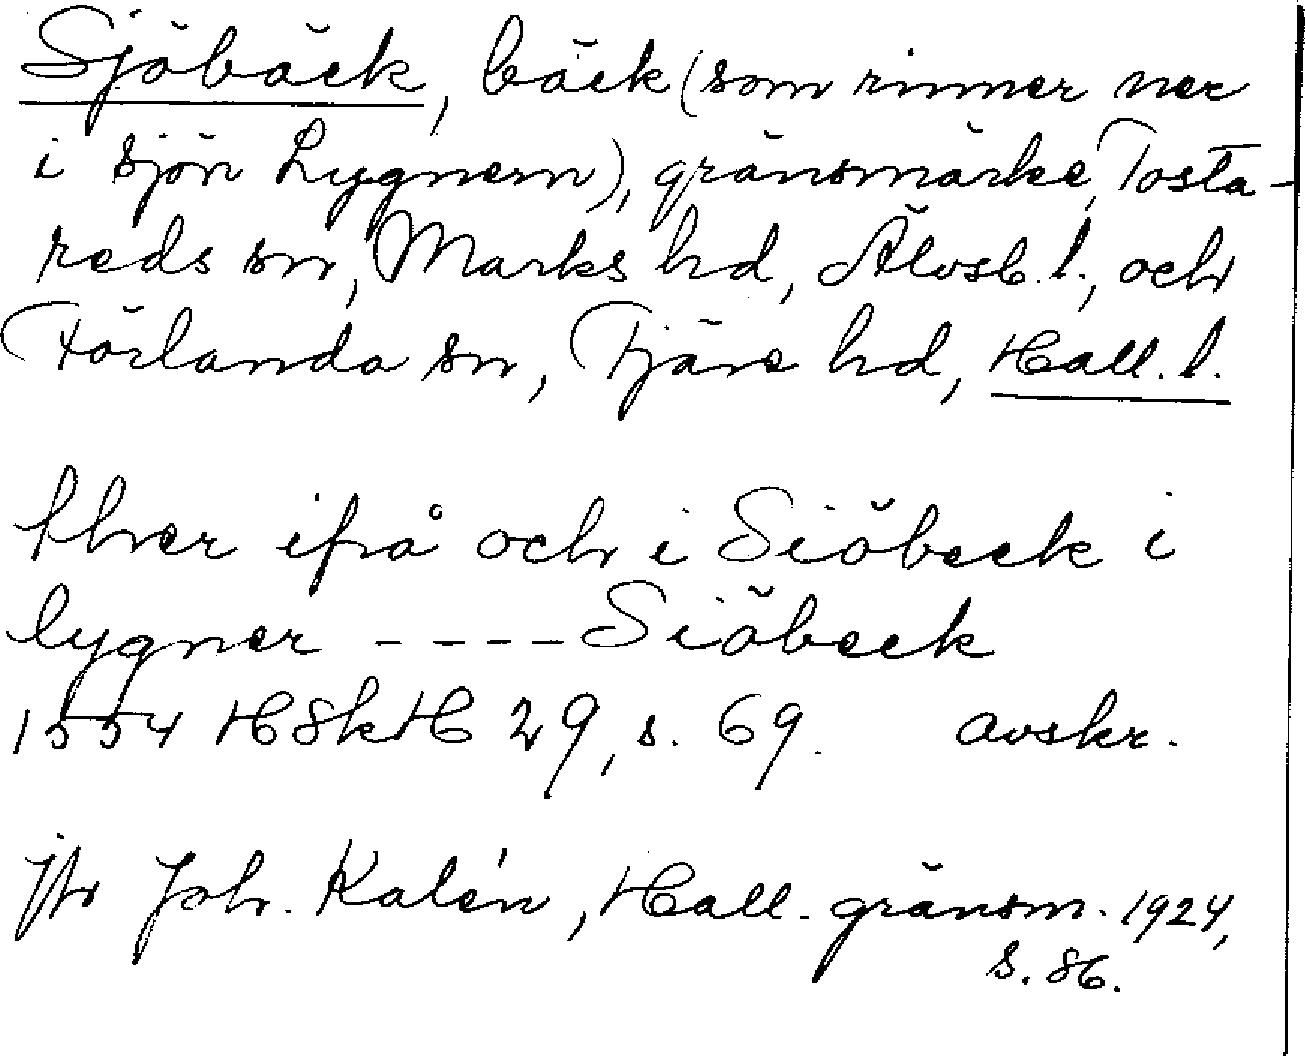 Sjöbäck, bäck (som rinner ner
i sjön Lygnern), gränsmärke, Tosta-
reds sn, Marks hd, Älvsb. l., och
Förlanda sn, Fjäre hd, Hall. l.
ther ifrå och i Siöbeck i
lygner ---- Siöbeck
1554 HSkH 29, s. 69. avskr.
jfr Joh. Kalén, Hall. gränsm. 1924,
s. 86.